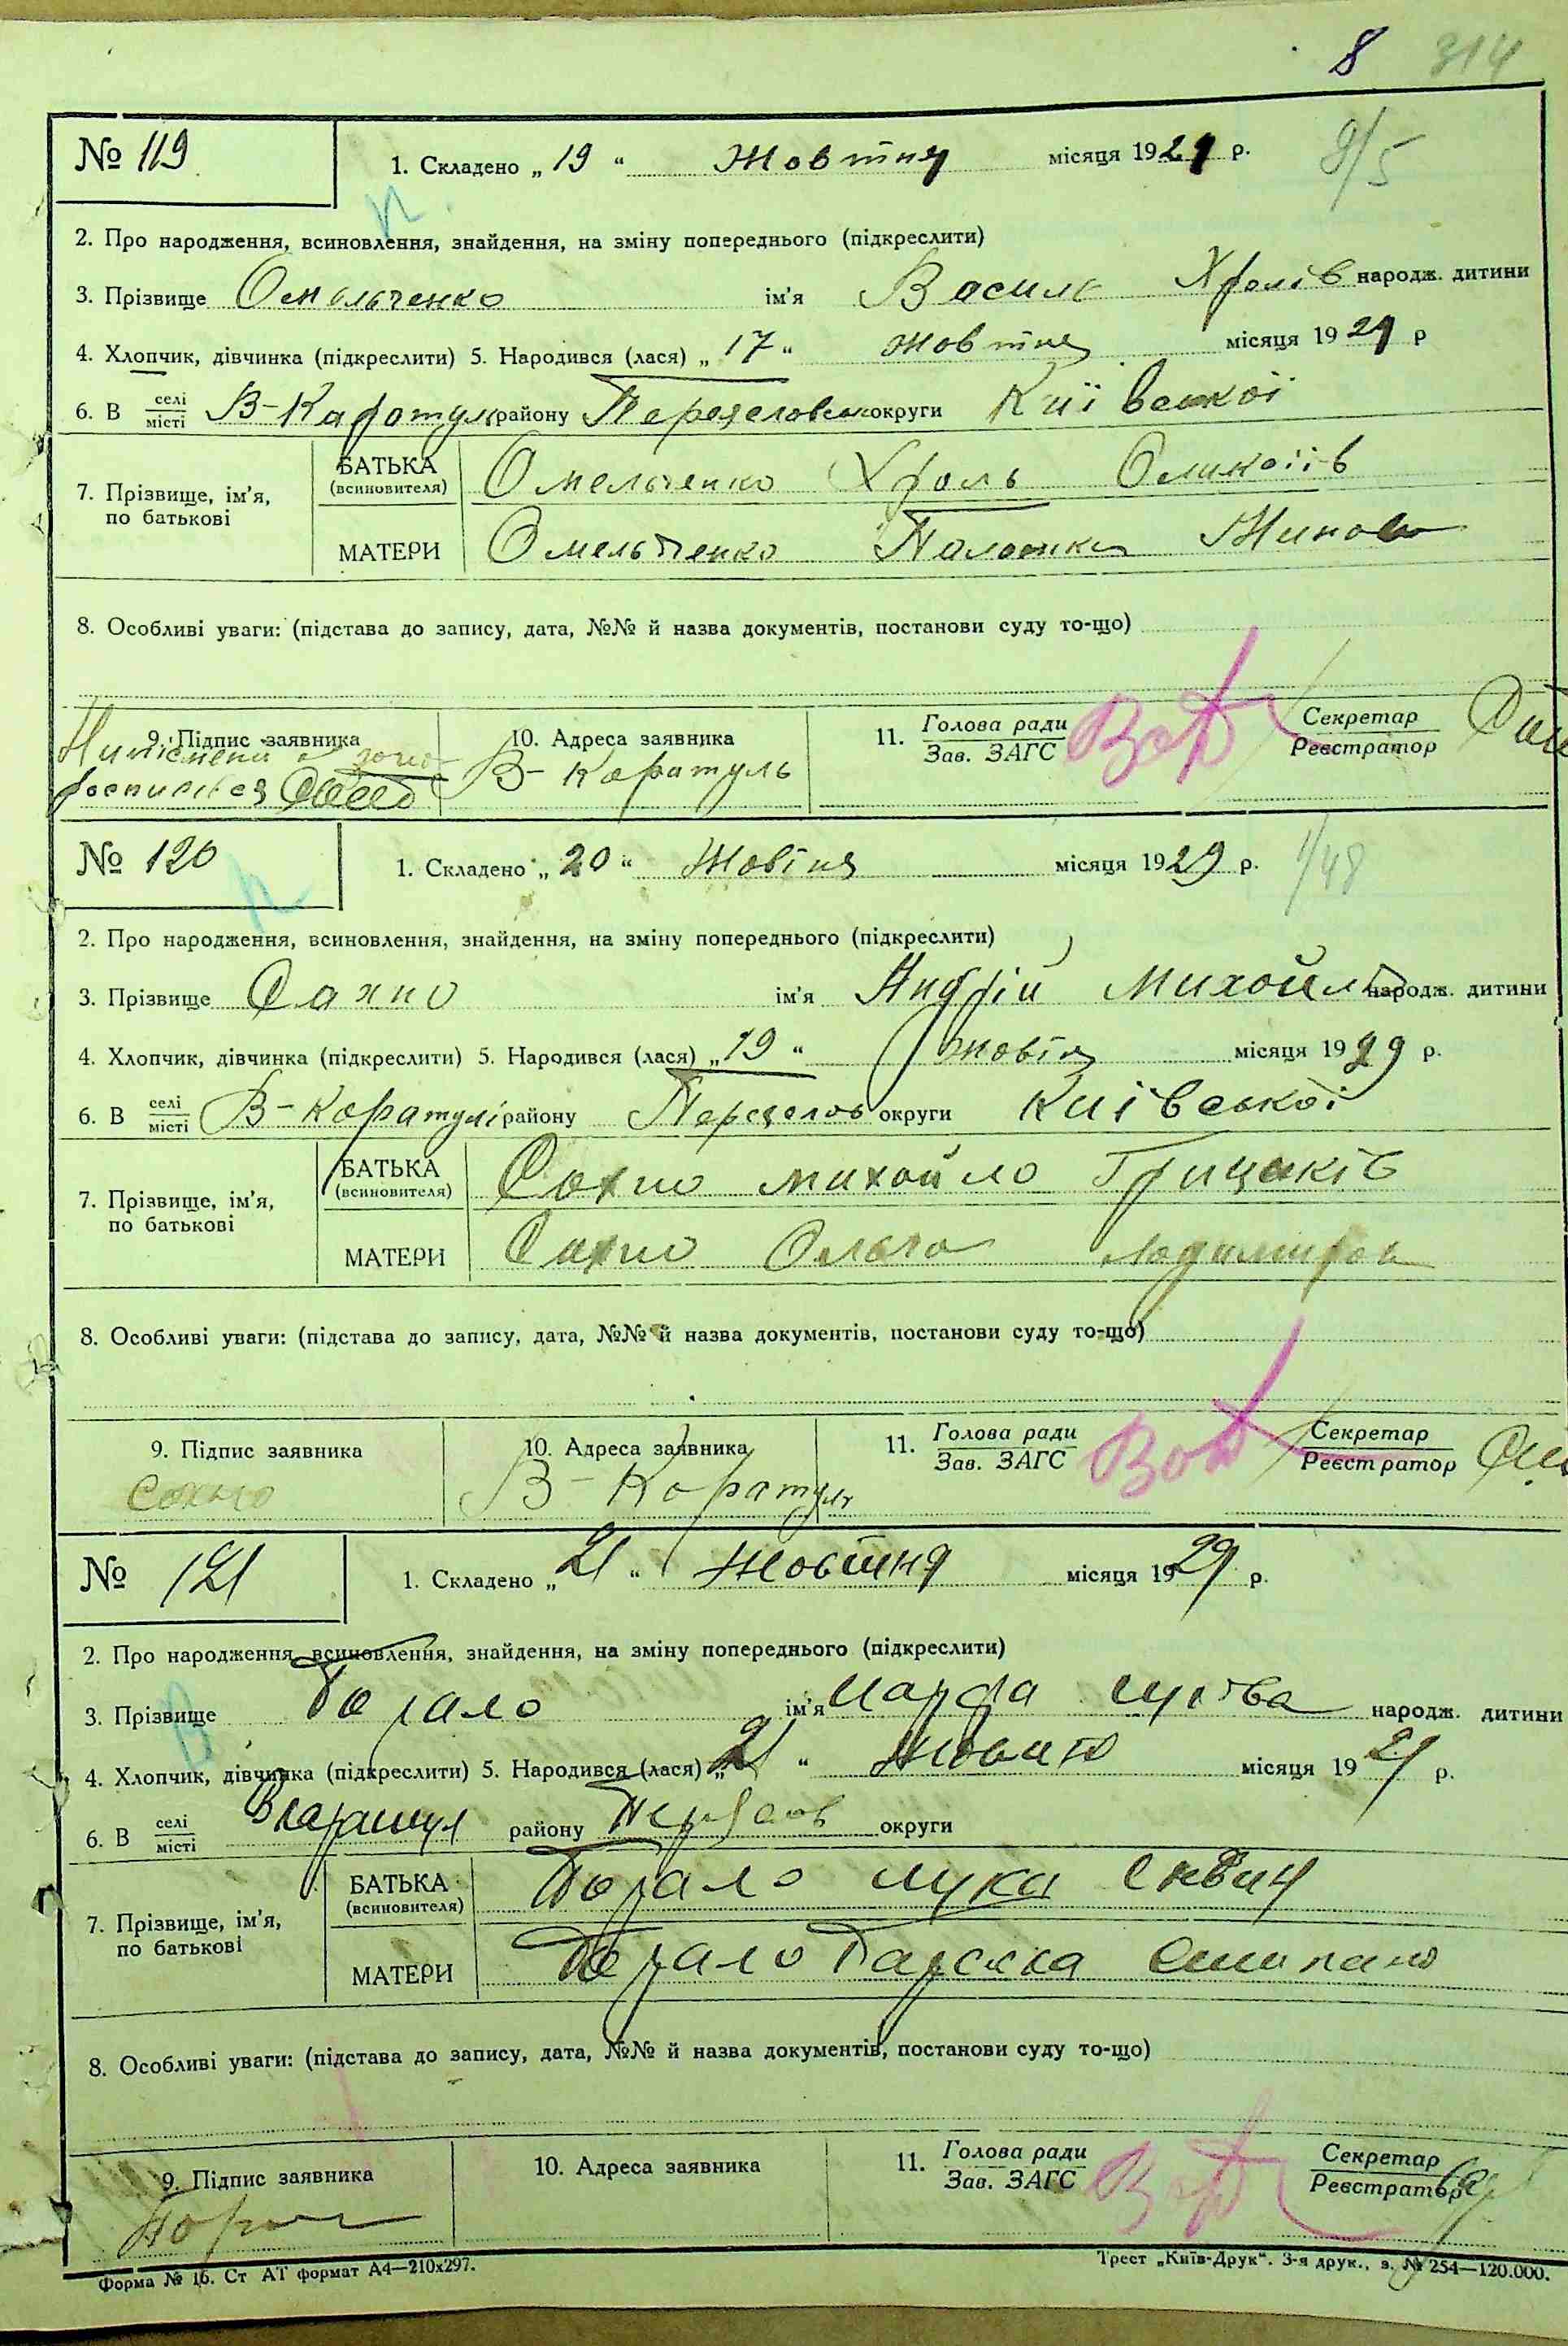 8 314
№ 119 1. Складено „ 19 “ Жовтня місяця 1929 р. 9/5
2. Про народження, всиновлення, знайдення, на зміну попереднього (підкреслити)
3. Прізвище Омельченко ім'я Василь Хролів народж. дитини
4. Хлопчик, дівчинка (підкреслити) 5. Народився (лася) „ 17 “ Жовтня місяця 1929 р
6. В селі місті В-Каратулі району округи Київської
7. Прізвище, ім'я, по батькові
БАТЬКА (всиновителя) Омельченко Хроль
МАТЕРИ Омельченко
8. Особливі уваги: (підстава до запису, дата, №№ й назва документів, постанови суду то-що)
9. Підпис заявника 10. Адреса заявника 11. Голова ради Зав. ЗАГС Секретар Реєстратор
В-Каратуль
№ 120 1. Складено „ 20 “ Жовтня місяця 1929 р. 1/48
2. Про народження, всиновлення, знайдення, на зміну попереднього (підкреслити)
3. Прізвище Сахно ім'я Андрій народж. дитини
4. Хлопчик, дівчинка (підкреслити) 5. Народився (лася) „ 19 “ Жовтя місяця 1929 р.
6. В селі місті В-Каратулі району Переяслов округи Київської
7. Прізвище, ім'я, по батькові
БАТЬКА (всиновителя) Сахно михайло Грицьків
МАТЕРИ Сахно Ольга
8. Особливі уваги: (підстава до запису, дата, №№ й назва документів, постанови суду то-що)
9. Підпис заявника 10. Адреса заявника 11. Голова ради Зав. ЗАГС Секретар Реєстратор
Сахно В-Каратуль
№ 121 1. Складено „ 21 “ Жовтня місяця 1929 р.
2. Про народження, всиновлення, знайдення, на зміну попереднього (підкреслити)
3. Прізвище ім'я Марфа народж. дитини
4. Хлопчик, дівчинка (підкреслити) 5. Народився (лася) „ 21 “ місяця 1929 р.
6. В селі місті району округи
7. Прізвище, ім'я, по батькові
БАТЬКА (всиновителя) лука
МАТЕРИ
8. Особливі уваги: (підстава до запису, дата, №№ й назва документів, постанови суду то-що)
9. Підпис заявника 10. Адреса заявника 11. Голова ради Зав. ЗАГС Секретар Реєстратор
Форма № 16. Ст АТ формат А4—210х297. Трест „Київ-Друк“. 3-я друк., з. № 254—120.000.